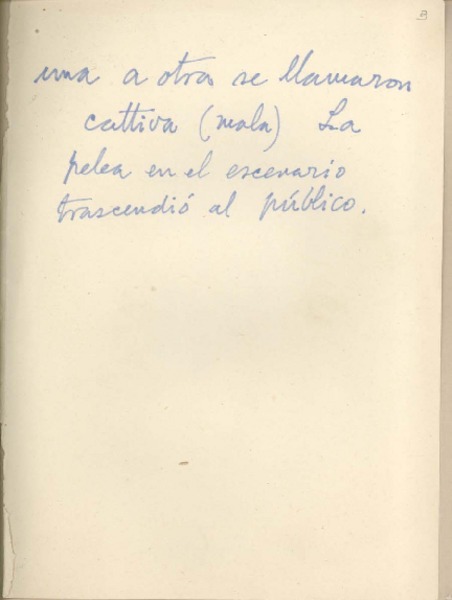 una a otra se llamaron
cattiva (mala) La
pelea en el escenario
trascendió al público.